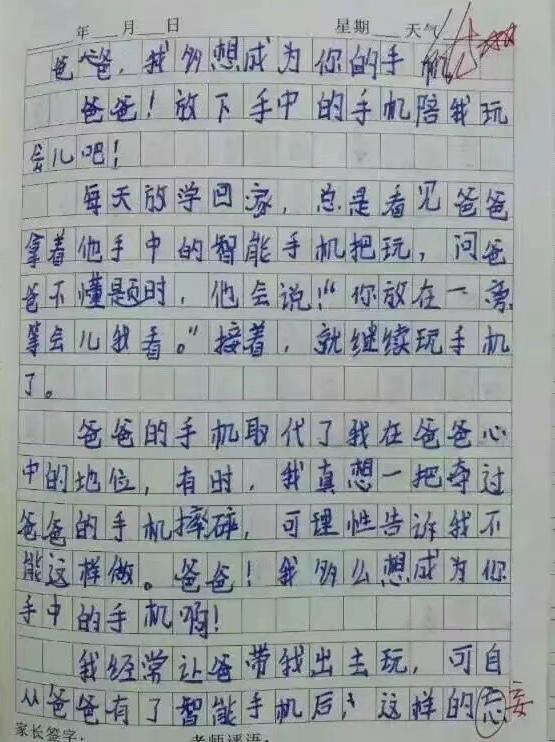 年 月 日 星期 天气
爸爸，我多想成为你的手机
爸爸！放下手中的手机陪我玩
会儿吧！
每天放学回家，总是看见爸爸
拿着他手中的智能手机把玩，问爸
爸不懂是题时，他会说！“你放在一旁，
等会儿我看。”接着，就继续玩手机
了。
爸爸的手机取代了我在爸爸心
中的地位，有时，我真想一把夺过
爸爸的手机摔碎，可理性告诉我不
能这样做。爸爸！我多么想成为你
手中的手机啊！
我经常让爸带我出去玩，可自
从爸爸有了智能手机后，这样的忘妄
家长签字： 老师评语：